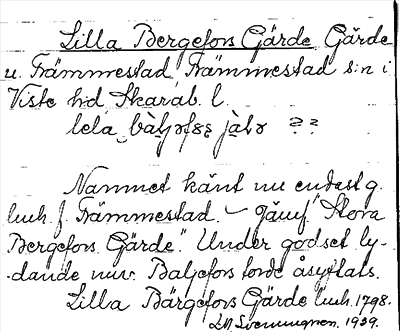 Lilla Bergefors Gärde Gärde
u. Främmestad, Främmestad s:n i
Viste hd Skarab. l.
lela
jàlɤ ??
Namnet känt nu endast g.
luch. f. Främmestad. – jämf "Stora
Bergefors Gärde". Under godset ly-
dande nuv. Baljefors torde åsyftats.
Lilla Bärgefors Gärde luch. 1798.
1939.